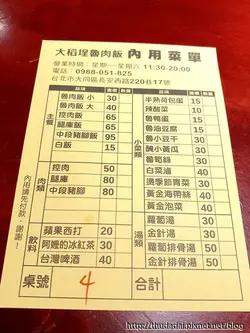 大稻埕魯肉飯 內用菜單
營業時間：星期一~星期六 11:30-20:00
電話：0988-051-825
台北市大同區長安西路220巷17號
品項 單價 數量
主餐
魯肉飯 小 30
魯肉飯 大 40
控肉飯 60
腿庫飯 60
中段豬腳飯 95
白飯 15
肉類
控肉 50
腿庫 50
中段豬腳 80
飲料
蘋果西打 20
阿嬤的冰紅茶 30
台灣啤酒 40
品項 單價 數量
小菜類
半熟荷包蛋 15
辣酸菜 10
魯蛋 15
魯油豆腐 10
魯小豆干 20
醃小黃瓜 30
魯筍絲 30
白菜滷 40
適季節青菜 30
黃金海帶絲 40
黃金泡菜 40
湯類
蘿蔔湯 30
金針湯 30
蘿蔔排骨湯 50
金針排骨湯 50
桌號 4 合計
內用請先付款，謝謝！
thudadai.pixnet.net/blog